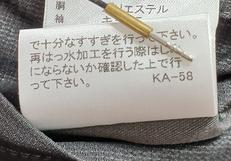 胴
袖
エステル
で十分なすすぎを行って下さい。
再はっ水加工を行う際はし
にならないか確認した上で行
って下さい。 KA-58